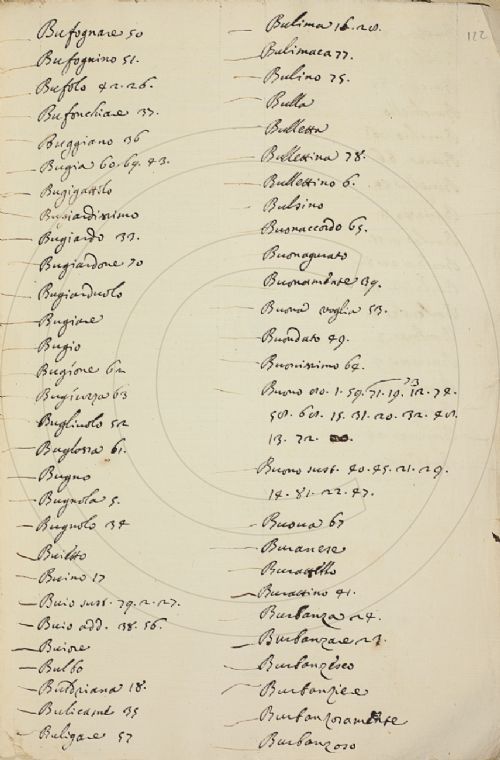 122
Bufognare 50
Bufognino 51.
Bufolo 42. 26.
Bufonchiare 37.
Buggiano 36
Bugia 60. 69. 43.
Bugigattolo
Bugiardissimo
Bugiardo 33.
Bugiardone 70
Bugiarduolo
Bugiare
Bugio
Bugione 62
Bugiuzza 63
Bugliuolo 52
Buglossa 61.
Bugno
Bugnola 5.
Bugnolo 34
Buino 17
Buio sust. 79. 2. 27.
Buio add. 38. 56.
Buiore
Bulbo
Bulicame 35
Buligare 57
Bulima 16. 28.
Bulimaca 77.
Bulino 75.
Bulla
Bulletta
Bullettina 78.
Bullettino 6.
Bulsino
Buonaccordo 65.
Buonagurato
Buonamente 39.
Buona voglia 53.
Buondato 49.
Buonissimo 64.
Buono 1. 59. 71. 19. 12. 74.
58. 68. 15. 31. 20. 32. 48.
13. 72.
Buono sust. 40. 45. 21. 29.
14. 81. 22. 47.
Buova 67
Buranese
Burattello
Burattino 41.
Burbanza 24.
Burbanzare 23.
Burbanzesco
Burbanziere
Burbanzosamente
Burbanzoso